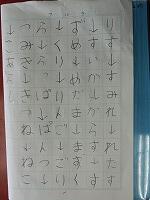 りす→すみれ→れたす
→すいか→からす→す
ずめ→めだま→ます
く→くり→りんご→ごり
ら→らっぱ→ぱんつ→
つみき→きつね→ねこ
→こあら